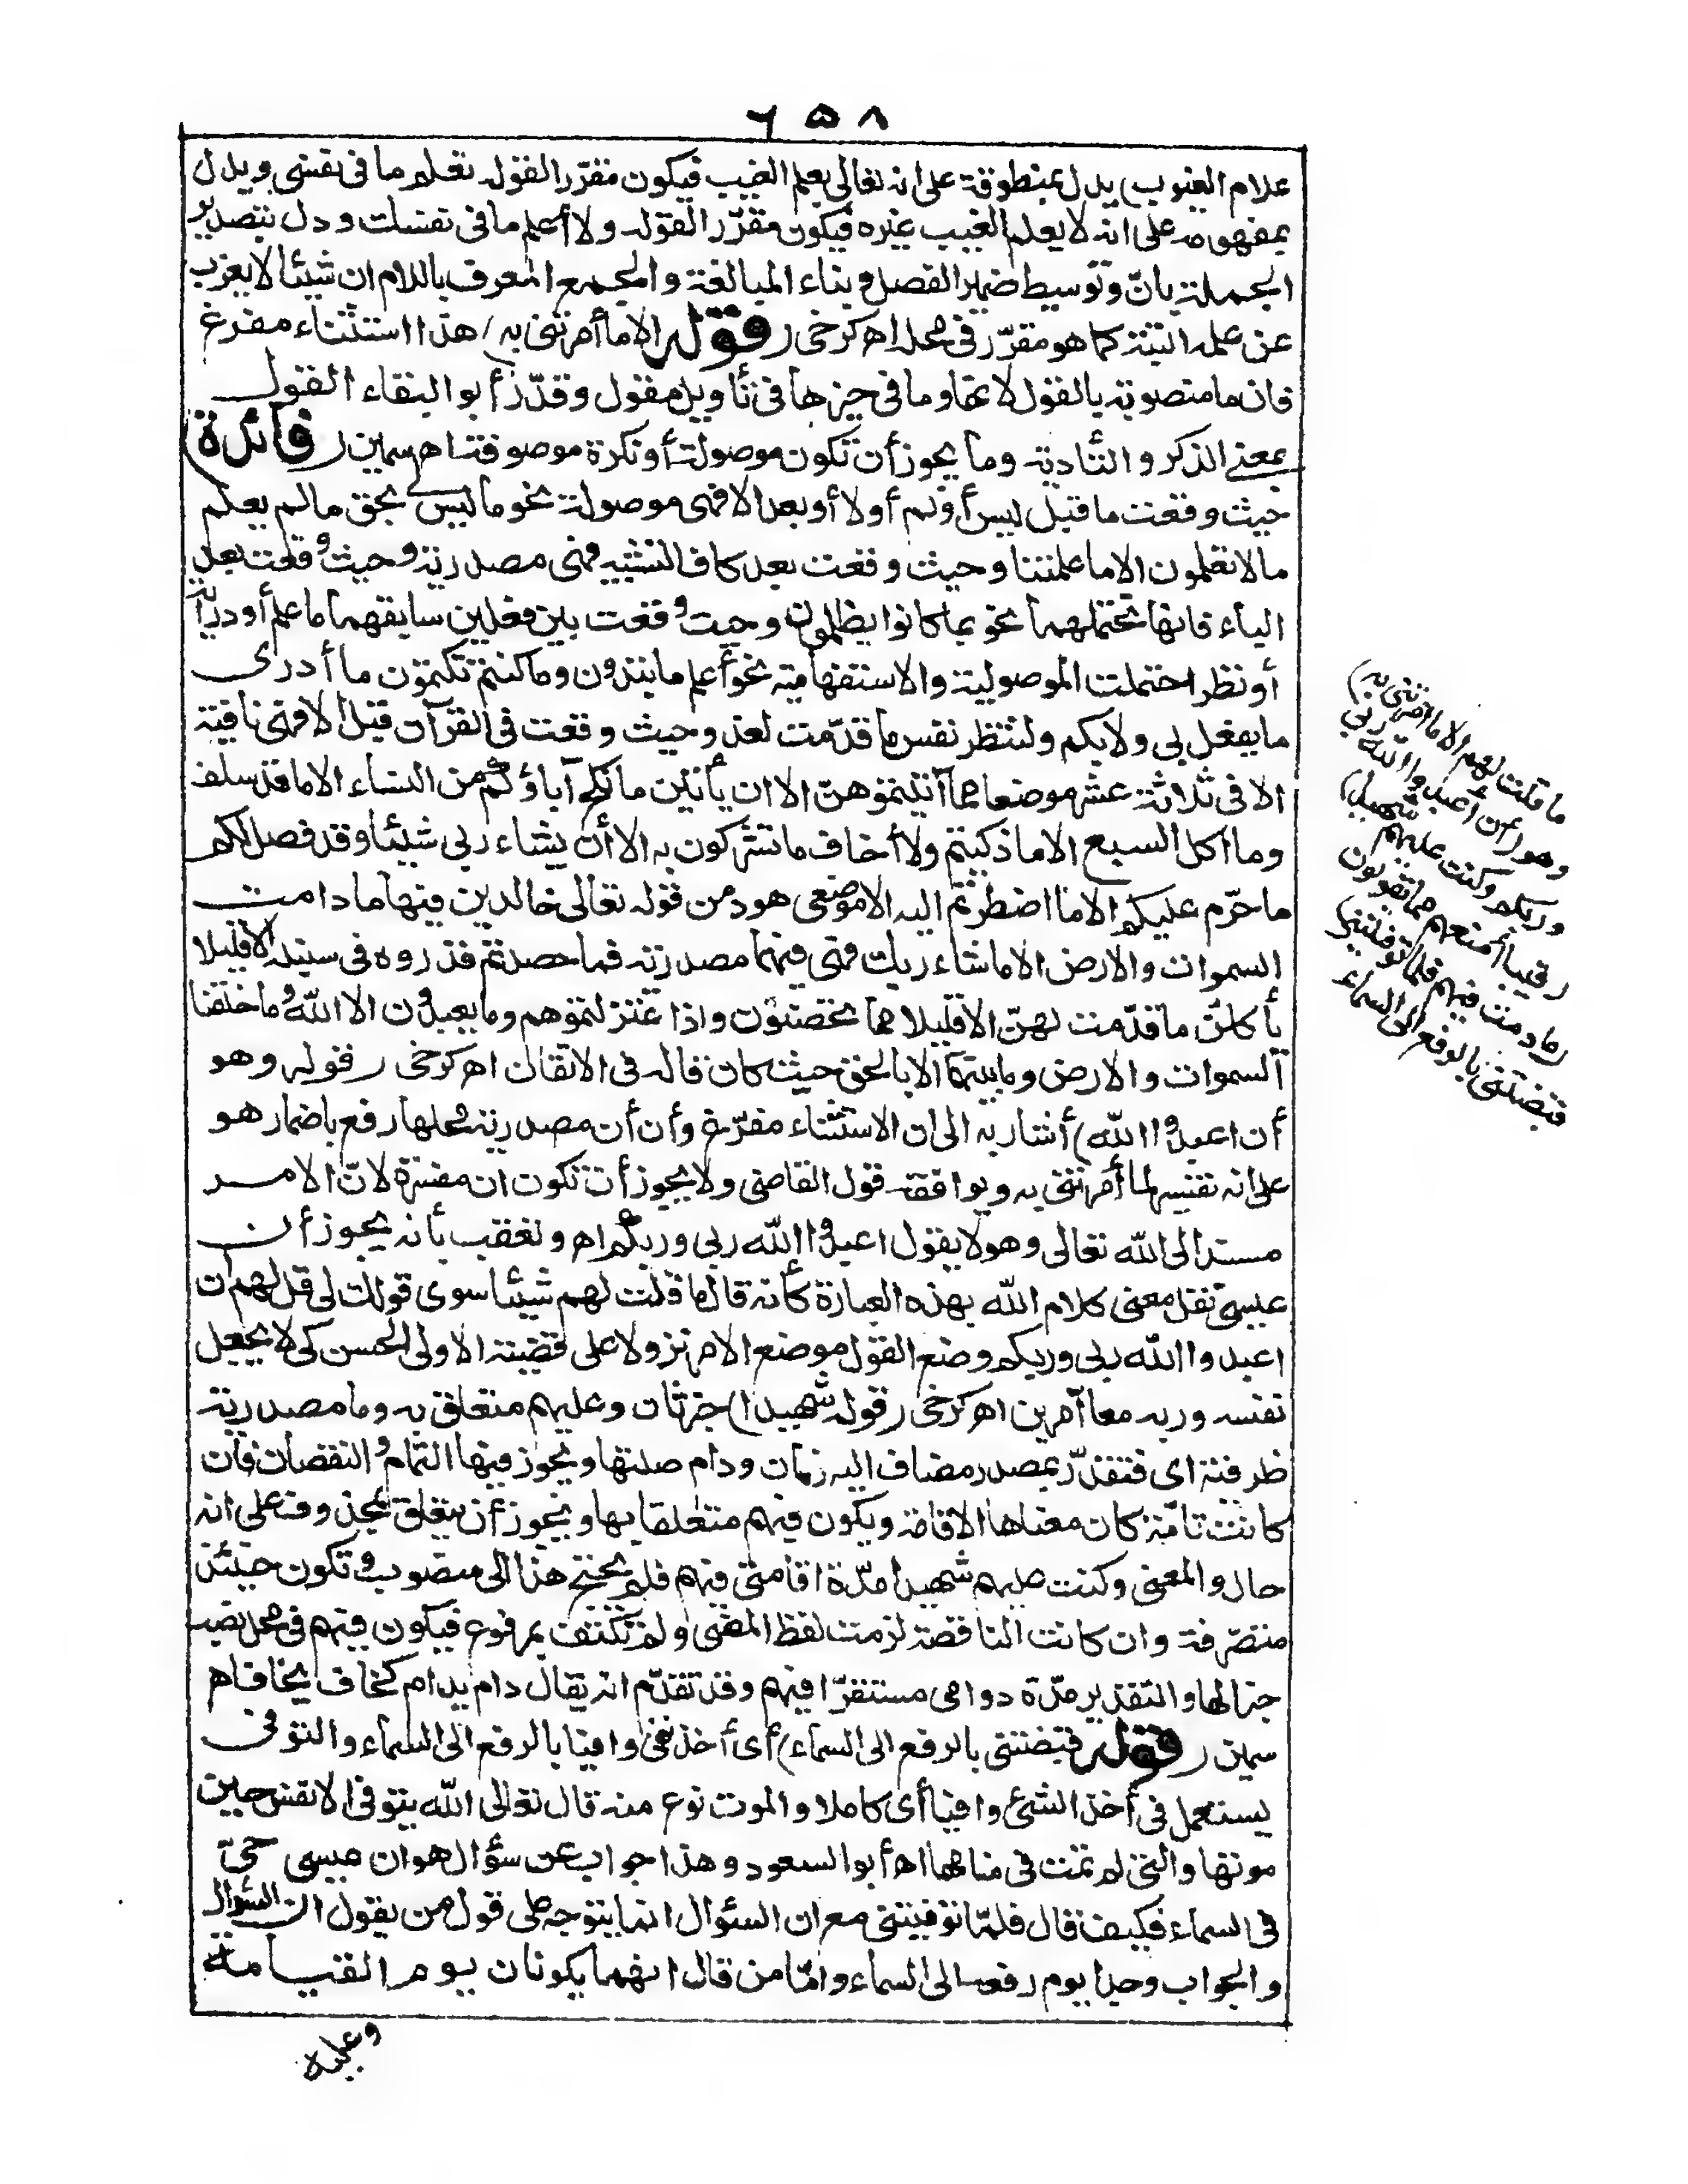 ٦٥٨
علام الغيوب) يدل بمنطوقه على انه تعالى يعلم الغيب فيكون مقرّرا لقوله تعلم ما فى نفسى ويدل
بمفهومه على انه لا يعلم الغيب غيره فيكون مقرّرا لقوله ولا أعلم ما فى نفسك ودل بتصدير
الجملة بانّ وتوسيط ضمير الفصل وبناء المبالغة والجمع المعرف باللام ان شيئا لا يعزب
عن علمه البتة كما هو مقرّر فى محله اه كرخى (قوله الا ما أمرتنى به) هذا استثناء مفرغ
فان ما منصوبة بالقول لانها وما فى حيزها فى تأويل مقول وقدّر أبو البقاء القول
بمعنى الذكر والتأدية وما يجوز أن تكون موصولة أو نكرة موصوفة اه سمين (فائدة)
حيث وقعت ما قبل ليس أو لم أو لا أو بعد الا فهى موصولة نحو ما ليس لى بحق ما لم يعلم
ما لا تعلمون الا ما علمتنا وحيث وقعت بعد كاف التشبيه فهى مصدرية وحيث وقعت بعد
الباء فانها تحتملهما نحو بما كانوا يظلمون وحيث وقعت بين فعلين سابقهما علم أو دراية
أو نظر احتملت الموصولية والاستفهامية نحو أعلم ما تبدون وما كنتم تكتمون ما أدرى
ما يفعل بى ولا بكم ولتنظر نفس ما قدّمت لغد وحيث وقعت فى القرآن قبل الا فهى نافية
الا فى ثلاثة عشر موضعا مما آتيتموهنّ الا ان يأتين ما نكح آباؤكم من النساء الا ما قد سلف
وما اكل السبع الا ما ذكيتم ولا أخاف ما تشركون به الا أن يشاء ربى شيئا وقد فصل لكم
ما حرّم عليكم الا ما اضطررتم اليه الا موضعى هود من قوله تعالى خالدين فيها ما دامت
السموات والارض الا ما شاء ربك فهى فيهما مصدرية فما حصدتم فذروه فى سنبله الا قليلا
يأكلن ما قدّمت لهنّ الا قليلا مما تحصنون واذا عتزلتموهم وما يعبدون الا الله وما خلقنا
السموات والارض وما بينهما الا بالحق حيث كان قاله فى الاتقان اه كرخى (قوله وهو
أن اعبدوا الله) أشار به الى ان الاستثناء مفرّغ وأن أن مصدرية محلها رفع باضمار هو
على انه تفسير لما أمرتنى به ويوافقه قول القاضى ولا يجوز أن تكون ان مفسرة لانّ الامر
مسند الى الله تعالى وهو لا يقول اعبدوا الله ربى وربكم اه وتعقب بأنه يجوز أن
عيسى نقل معنى كلام الله بهذه العبارة كأنه قال ما قلت لهم شيئا سوى قولك لى قل لهم ان
اعبدوا الله ربى وربكم وضع القول موضع الامر نزولا على قضية الاولى الحسن كى لا يجعل
نفسه وربه معا آمرين اه كرخى (قوله شهيدا) خبر ثان وعليهم متعلق به وما مصدرية
ظرفية اى فتقدّر بمصدر مضاف اليه زمان ودام صلتها ويجوز فيها التمام والنقصان فان
كانت تامّة كان معناها الاقامة ويكون فيهم متعلقا بها ويجوز أن يتعلق بمحذوف على انه
حال والمعنى وكنت عليهم شهيدا مدّة اقامتى فيهم فلم يحتج هذا الى منصوب وتكون حينئذ
متصرفة وان كانت الناقصة لزمت لفظ المضى ولم تكتف بمرفوع فيكون فيهم فى محل نصب
خبرا لها والتقدير مدّة دوامى مستقرّا فيهم وقد تقدّم انه يقال دام يدام كخاف يخاف اه
سمين (قوله قبضتنى بالرفع الى السماء) أى أخذتنى وافيا بالرفع الى السماء والتوفى
يستعمل فى أخذ الشئ وافيا أى كاملا والموت نوع منه قال تعالى الله يتوفى الانفس حين
موتها والتى لم تمت فى منامها اه أبو السعود وهذا جواب عن سؤال هو ان عيسى حىّ
فى السماء فكيف قال فلمّا توفيتنى مع ان السئوال انما يتوجه على قول من يقول ان السئوال
والجواب وجدا يوم رفعه الى السماء وامّا من قال انهما يكونان يوم القيامة
وعليه
ما قلت لهم الا ما امرتنى به)
وهو (أن أعبدوا الله ربى
وربكم وكنت عليهم شهيدا)
رقيبا أمنعهم مما يقولون
(ما دمت فيهم فلما توفيتنى)
قبضتنى بالرفع الى السماء